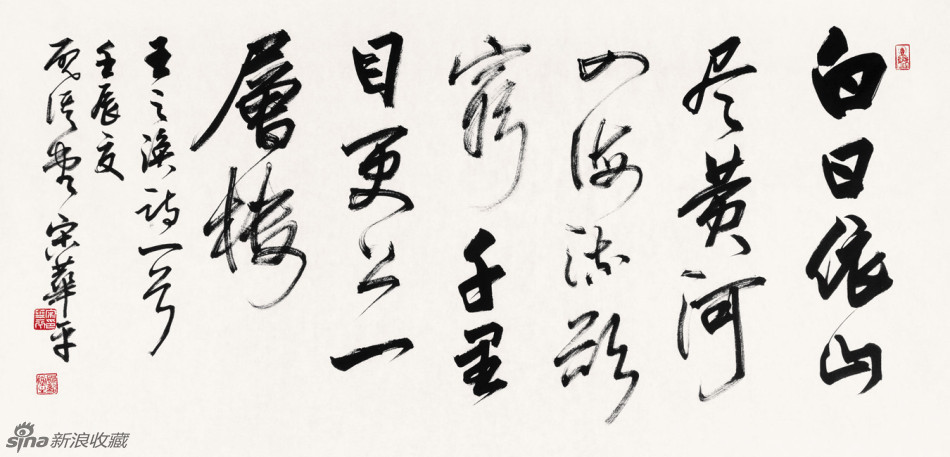 白日依山
尽黄河
入海流欲
窮千里
目更上一
層楼
王之涣诗一首
壬辰夏
宋華平
sina新浪收藏